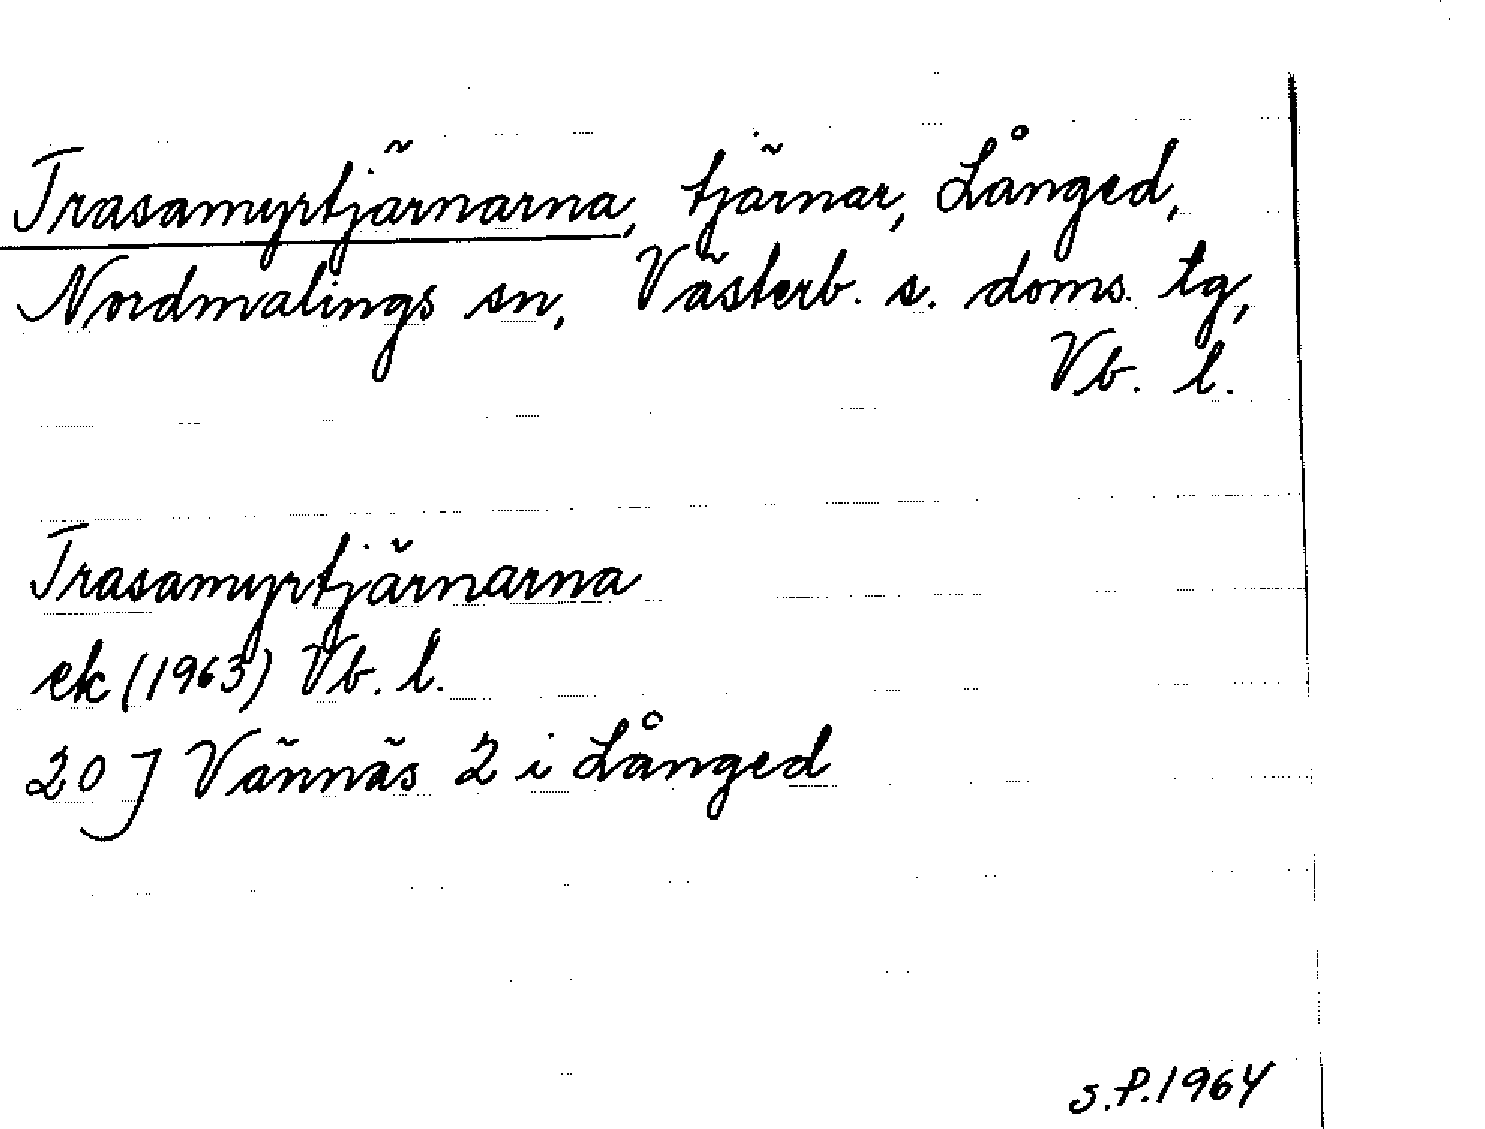 Trasamyrtjärnarna, tjärnar, Långed,
Nordmalings sn, Västerb. s. doms. tg,
Vb. l.
Trasamyrtjärnarna
ek (1963) Vb. l.
20 J Vännäs 2 i Långed
S.P. 1964